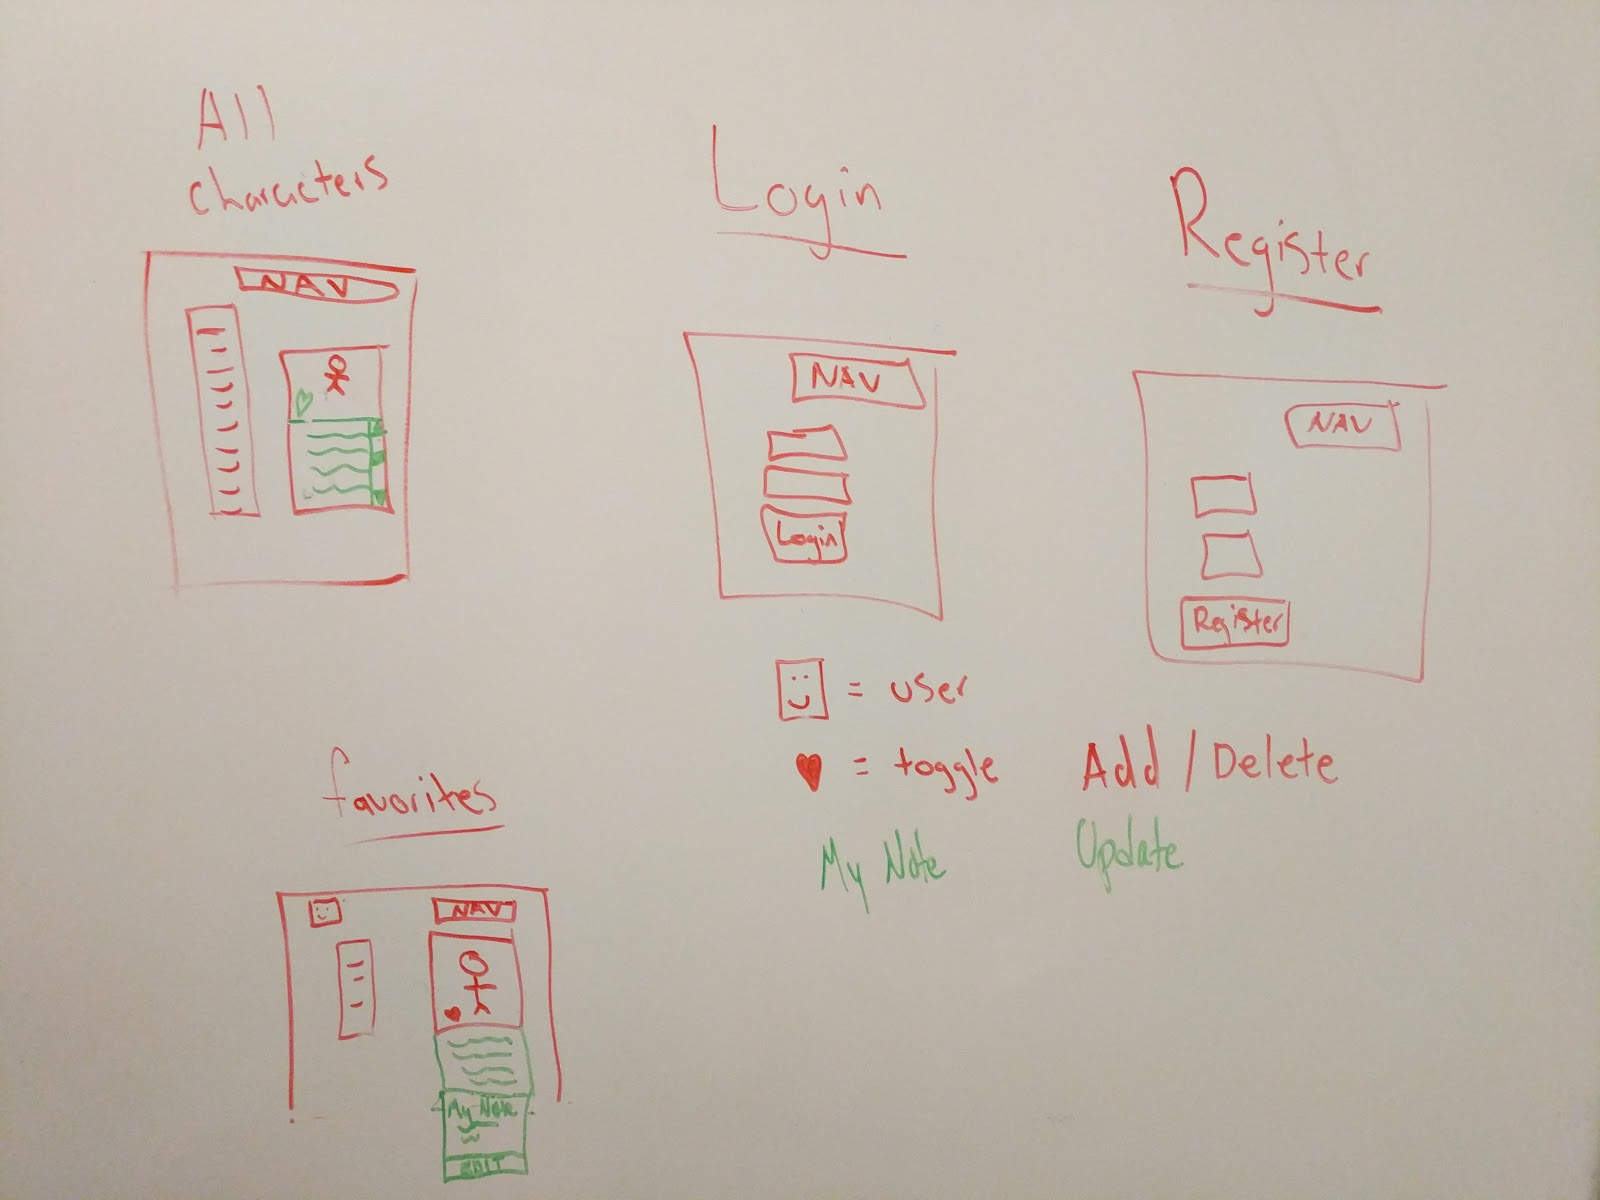 All
characters
NAV
Login
NAV
Login
Register
NAV
Register
= user
= toggle Add / Delete
My Note Update
favorites
NAV
My Note
EDIT